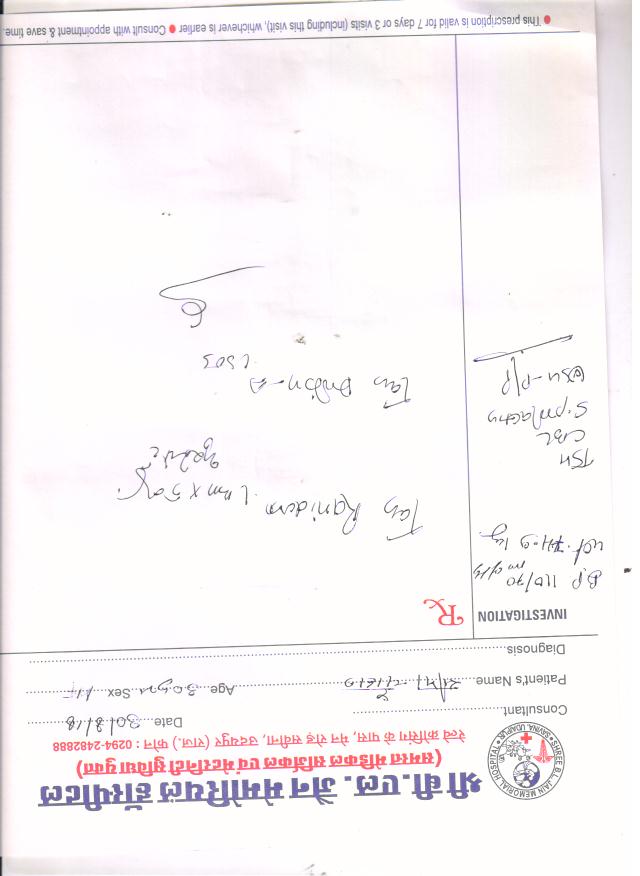 श्री बी.एल. जैन मेमोरियल हॉस्पीटल
(समस्त मेडिकल सर्जिकल एवं मेटरनिटी सुविधा युक्त)
रेल्वे क्रॉसिंग के पास, मेन रोड सवीना, उदयपुर (राज.) फोन : 0294-2482888
SHREE B.L. JAIN MEMORIAL HOSPITAL
SAVINA, UDAIPUR
Consultant
Date 30/3/18
Patient's Name
Age 30 yrs Sex F
Diagnosis
INVESTIGATION
Rx
B.P 110/70
mm of Hg
wt. 74.9 kg
TSH
CBC
S. prolactin
USG - P/P
Tab
Tab
L SOS
● This prescription is valid for 7 days or 3 visits (including this visit), whichever is earlier ● Consult with appointment & save time.